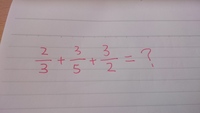 2/3 + 3/5 + 3/2 = ?